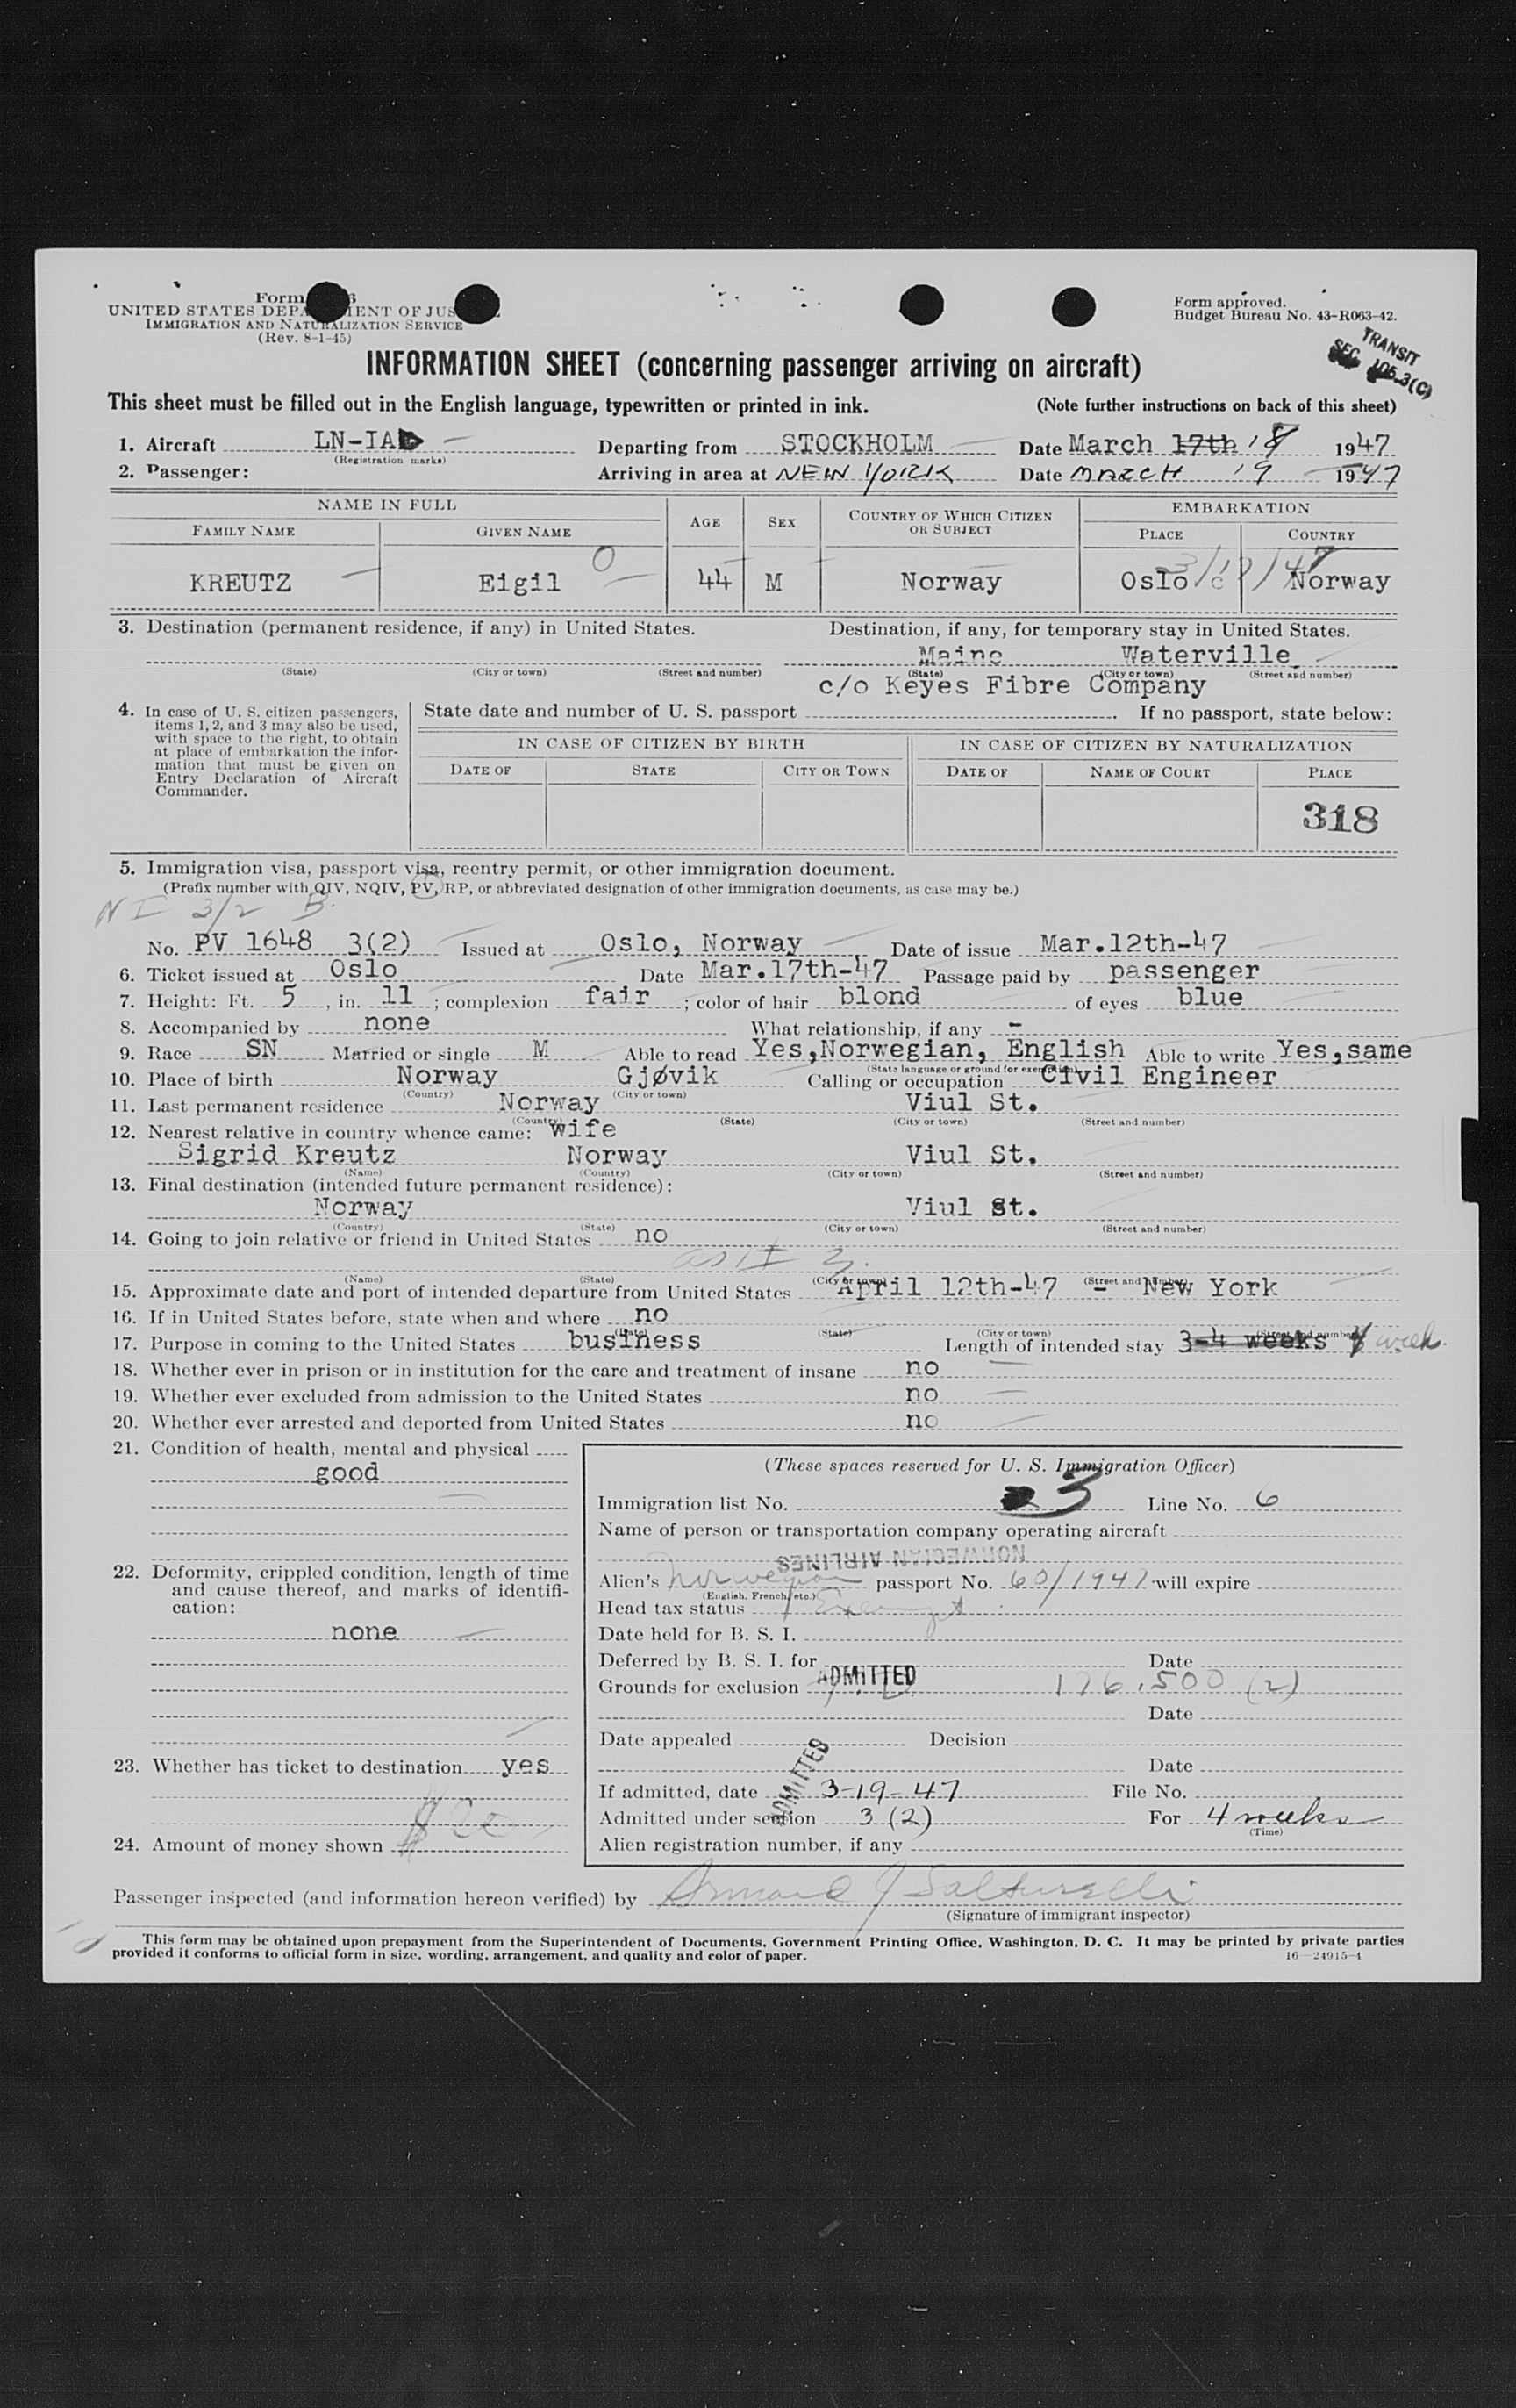 Form
UNITED STATES DEPARTMENT OF JUSTICE
IMMIGRATION AND NATURALIZATION SERVICE
(Rev. 8-1-45)
Form approved.
Budget Bureau No. 43-R063-42.
TRANSIT
SEC 105.3(C)
INFORMATION SHEET (concerning passenger arriving on aircraft)
This sheet must be filled out in the English language, typewritten or printed in ink. (Note further instructions on back of this sheet)
1. Aircraft LN-IA Departing from STOCKHOLM Date March 17th 18 1947
(Registration marks)
2. Passenger: Arriving in area at NEW YORK Date MARCH 19 1947
NAME IN FULL AGE SEX COUNTRY OF WHICH CITIZEN OR SUBJECT EMBARKATION
FAMILY NAME GIVEN NAME PLACE COUNTRY
KREUTZ Eigil O 44 M Norway Oslo Norway
3. Destination (permanent residence, if any) in United States. Destination, if any, for temporary stay in United States.
Maine Waterville
(State) (City or town) (Street and number) (State) (City or town) (Street and number)
c/o Keyes Fibre Company
4. In case of U. S. citizen passengers, items 1, 2, and 3 may also be used, with space to the right, to obtain at place of embarkation the information that must be given on Entry Declaration of Aircraft Commander.
State date and number of U. S. passport If no passport, state below:
IN CASE OF CITIZEN BY BIRTH IN CASE OF CITIZEN BY NATURALIZATION
DATE OF STATE CITY OR TOWN DATE OF NAME OF COURT PLACE
318
5. Immigration visa, passport visa, reentry permit, or other immigration document.
(Prefix number with QIV, NQIV, PV, RP, or abbreviated designation of other immigration documents, as case may be.)
NI 3/2 B
No. PV 1648 3(2) Issued at Oslo, Norway Date of issue Mar.12th-47
6. Ticket issued at Oslo Date Mar.17th-47 Passage paid by passenger
7. Height: Ft. 5, in. 11; complexion fair; color of hair blond of eyes blue
8. Accompanied by none What relationship, if any -
9. Race SN Married or single M Able to read Yes,Norwegian, English Able to write Yes,same
(State language or ground for exemption)
10. Place of birth Norway Gjøvik Calling or occupation Civil Engineer
(Country) (City or town)
11. Last permanent residence Norway Viul St.
(Country) (State) (City or town) (Street and number)
12. Nearest relative in country whence came: wife
Sigrid Kreutz Norway Viul St.
(Name) (Country) (City or town) (Street and number)
13. Final destination (intended future permanent residence):
Norway Viul St.
(Country) (State) (City or town) (Street and number)
14. Going to join relative or friend in United States no
(Name) (State) (City or town) (Street and number)
15. Approximate date and port of intended departure from United States April 12th-47 - New York
16. If in United States before, state when and where no
(Date) (State) (City or town) (Street and number)
17. Purpose in coming to the United States business Length of intended stay 3-4 weeks 4 weeks
18. Whether ever in prison or in institution for the care and treatment of insane no
19. Whether ever excluded from admission to the United States no
20. Whether ever arrested and deported from United States no
21. Condition of health, mental and physical
good
22. Deformity, crippled condition, length of time and cause thereof, and marks of identification:
none
23. Whether has ticket to destination yes
24. Amount of money shown
(These spaces reserved for U. S. Immigration Officer)
Immigration list No. 3 Line No. 6
Name of person or transportation company operating aircraft
NORWEGIAN AIRLINES
Alien's Norwegian passport No. 60/1947 will expire
(English, French, etc.)
Head tax status Exempt
Date held for B. S. I.
Deferred by B. S. I. for Date
ADMITTED
Grounds for exclusion 176.500 (2)
Date
Date appealed Decision
Date
ADMITTED
If admitted, date 3-19-47 File No.
Admitted under section 3 (2) For 4 weeks
(Time)
Alien registration number, if any
Passenger inspected (and information hereon verified) by Armand J Salturelli
(Signature of immigrant inspector)
This form may be obtained upon prepayment from the Superintendent of Documents, Government Printing Office, Washington, D. C. It may be printed by private parties
provided it conforms to official form in size, wording, arrangement, and quality and color of paper. 16—24915-4